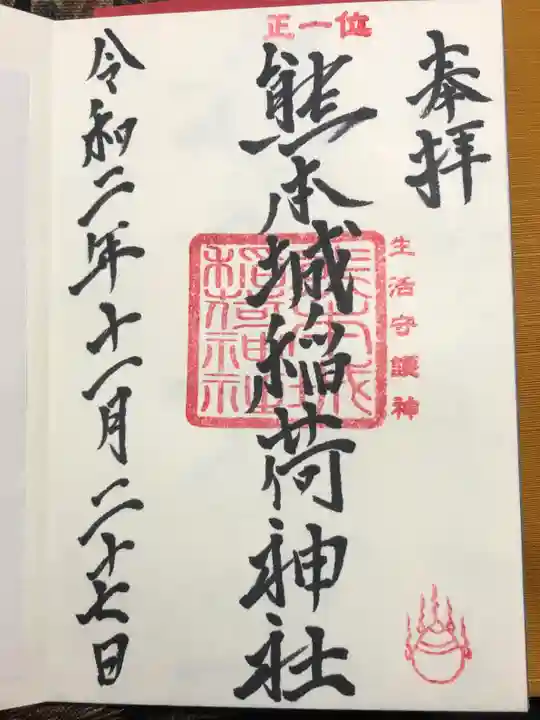 奉拝
生活守護神
正一位
熊本城稲荷神社
熊本城稲荷神社
令和二年十一月二十七日